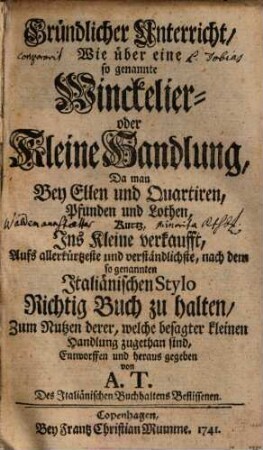 Gründlicher Unterricht/
Wie über eine
so genannte
Winckelier-
oder
Kleine Handlung,
Da man
Bey Ellen und Quartiren,
Pfunden und Lothen,
Kurtz,
Ins Kleine verkaufft,
Aufs allerkürtzeste und verständlichste, nach dem
so genannten
Italiänischen Stylo
Richtig Buch zu halten/
Zum Nutzen derer, welche besagter kleinen
Handlung zugethan sind,
Entworffen und heraus gegeben
von
A. T.
Des Italiänischen Buchhaltens Beflissenen.
Copenhagen,
Bey Frantz Christian Mumme. 1741.